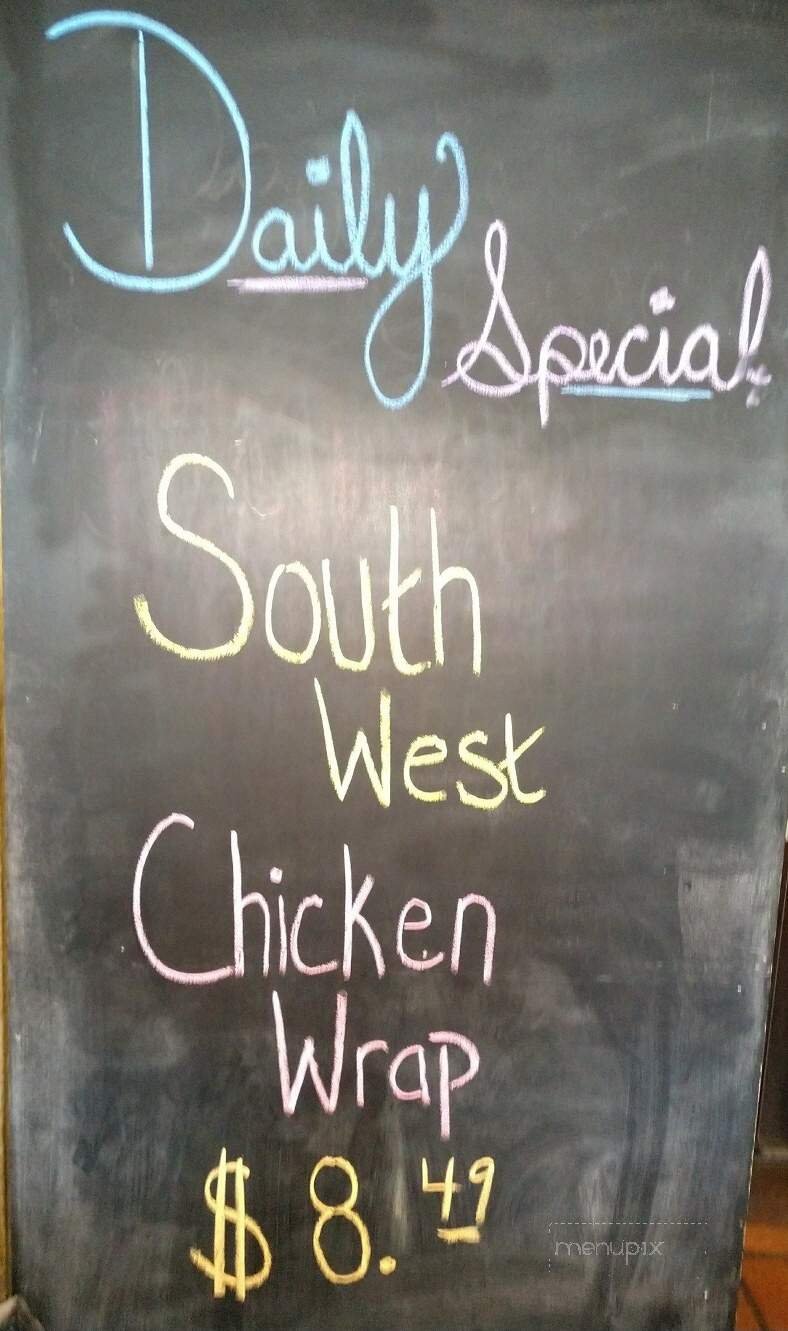 Daily
Special
South
West
Chicken
Wrap
$ 8.49
menupix